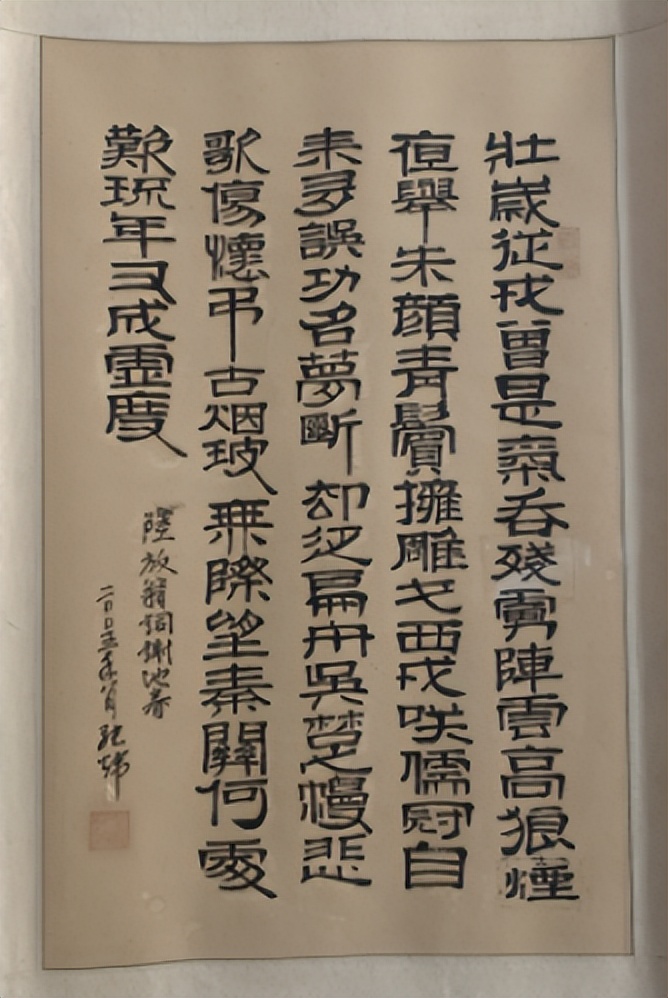 壯嵗從戎曾是氣吞殘虜陣雲高狼煙
夜舉朱顔青鬢擁雕戈西戍咲儒冠自
来多誤功名夢斷却泛扁舟吳楚漫悲
歌傷懷弔古烟波無際望秦關何處
歎流年又成虛度
陸放翁詞謝池春
二〇〇五年八月